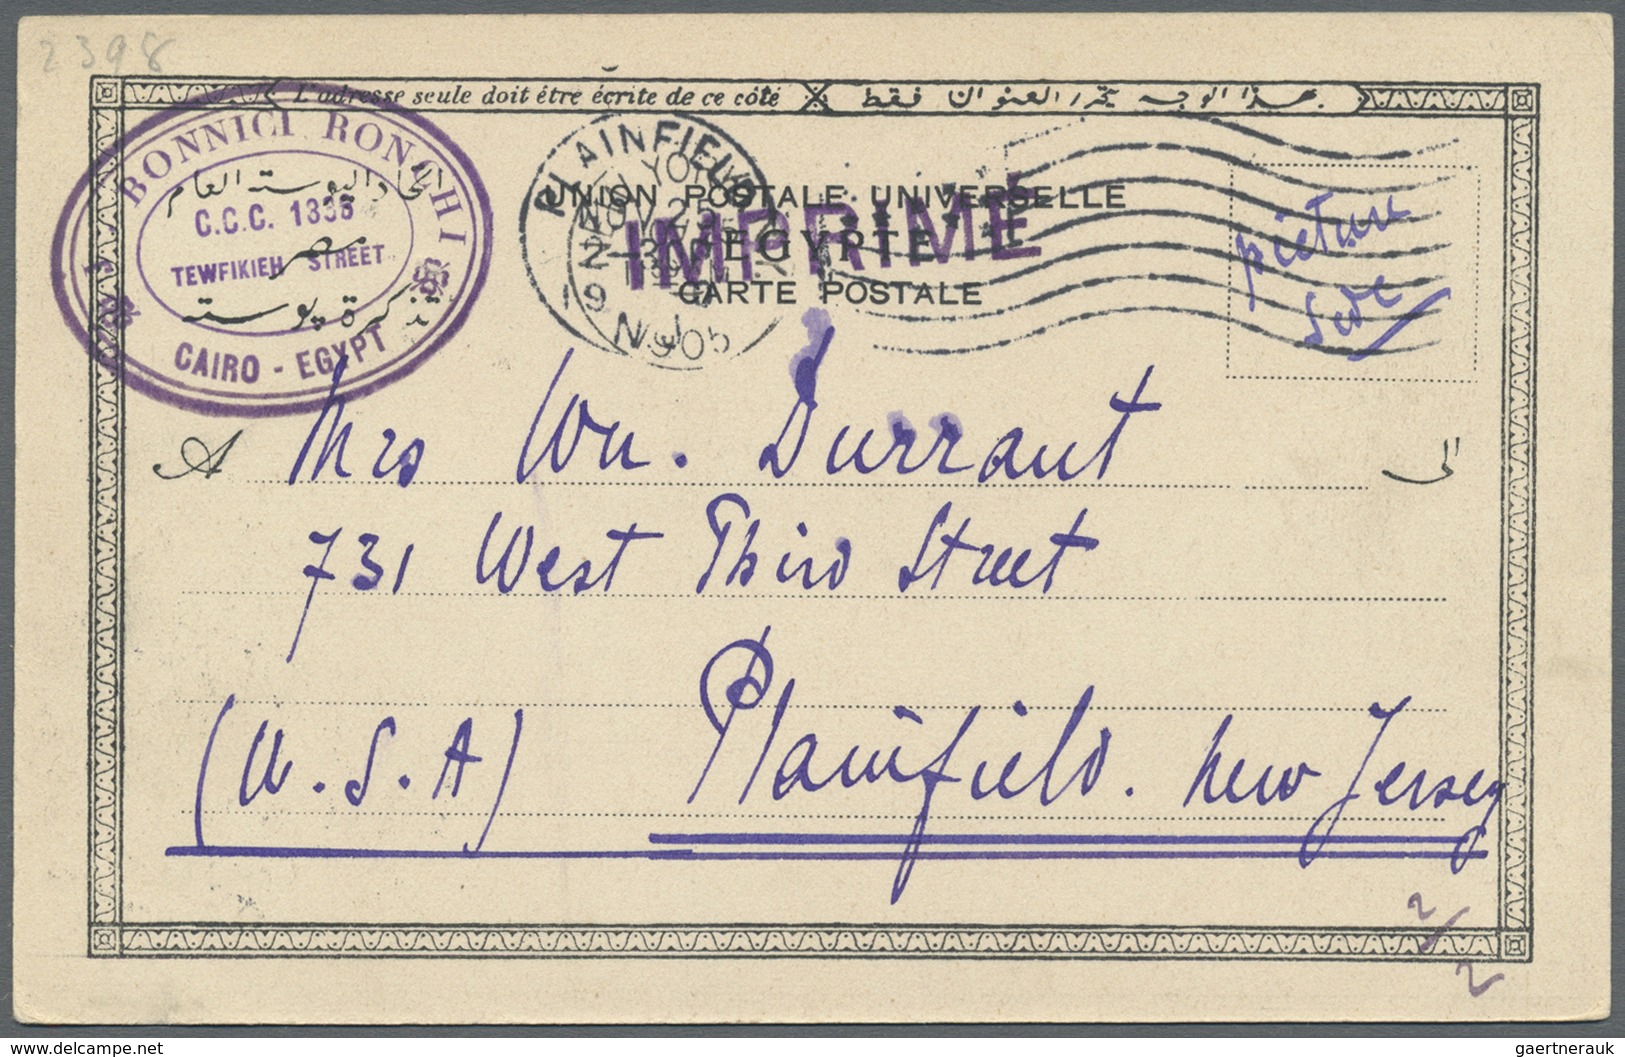 2398
L'adresse seule doit être écrite de ce côté
هذا الوجه يحرر العنوان فقط
BONNICI RONCHI
اتحاد البوسته العام
C.C.C. 1336
مصر
TEWFIKIEH STREET
تذكرة بوسته
CAIRO - EGYPT
PLAINFIELD
NOV 2
N.J.
1905
UNION POSTALE UNIVERSELLE
EGYPTE
CARTE POSTALE
IMPRIMÉ
picture
side
A
Mrs Wm. Durrant
الى
731 West Third Street
(U.S.A) Plainfield. New Jersey
2/2
gaertnerauk